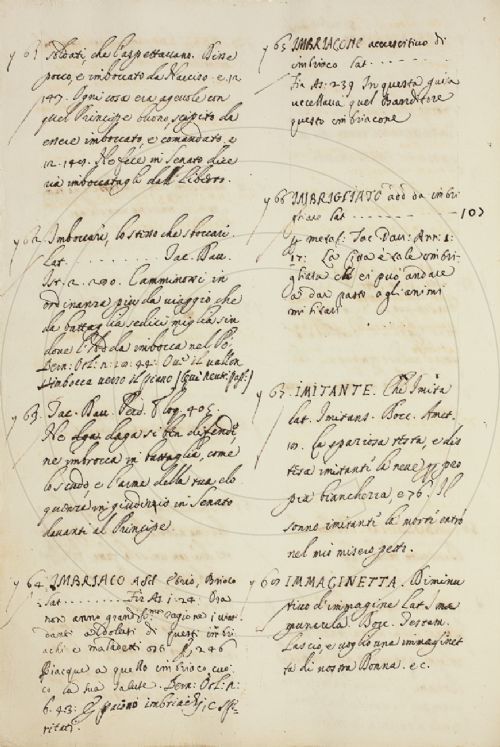 y 61 soldati, che l'aspettavano. Bene
poreo, e imboccato da Narciso. e. 12
147. Ogni cosa era agevole con
quel Principe buono,
essere imboccato, e comandato, e
12. 149. Nerone in Senato dice
imboccatagli dall Liberto.
y 62. Imboccare, lo stesso che sboccare
Lat. . . . . . . . . . Tac. Dav.
Ist. 2. 290. Camminossi in
ordinanza più da viaggio che
da battaglia sedici miglia sin
dove l'Adda imbocca nel Po.
Bern. Orl. n: 10: 44: Ov' il vallon
s'imbocca verso il piano
y 63. Tac. Dav. Perd. Eloq. 405.
Ne la daga si ben difende,
ne imbrocca in battaglia, come
lo scudo e l'arme della tua elo
quenza in giudizio in Senato
davanti al Principe.
y 64. IMBRIACO Add. Ebrio, Briaco
Lat . . . . . . . . Fir. As. 1. 24. Ora
non anno grandiss.me ragione i
danti addolati di questi imbri
achi e maladetti e 246
Piacque a quello imbriaco cuo
co la sua salute. Bern: Orl: n:
6. 43: imbriachi, e spi
ritati.
y 65 IMBRIACONE accrescitivo di
imbriaco Lat. . . . . . . .
Fir As: 239 In questa guisa
uccellava quel Banditore
questo imbriacone
y 66 IMBRIGLIATO add da imbri
gliare Lat . . . . . . . . 107
p metaf: Tac Dav: Ann: 1:
17: La Città è tale imbri-
gliata che ei può andare
a dar pasto agli animi
militari
y 67. IMITANTE. Che Imita
Lat. Imitans. Bocc. Amet.
La spaziosa testa, e dis
tesa imitante la neve p pro
pia bianchezza e 76. Il
sonno imitante la morte entrò
nel mio misero petto.
IMMAGINETTA. Diminu
tivo d'immagine Lat. Ima
muncula Bocc. Testam.
Lascio, e voglio una immaginet
ta di nostra Donna. e c.